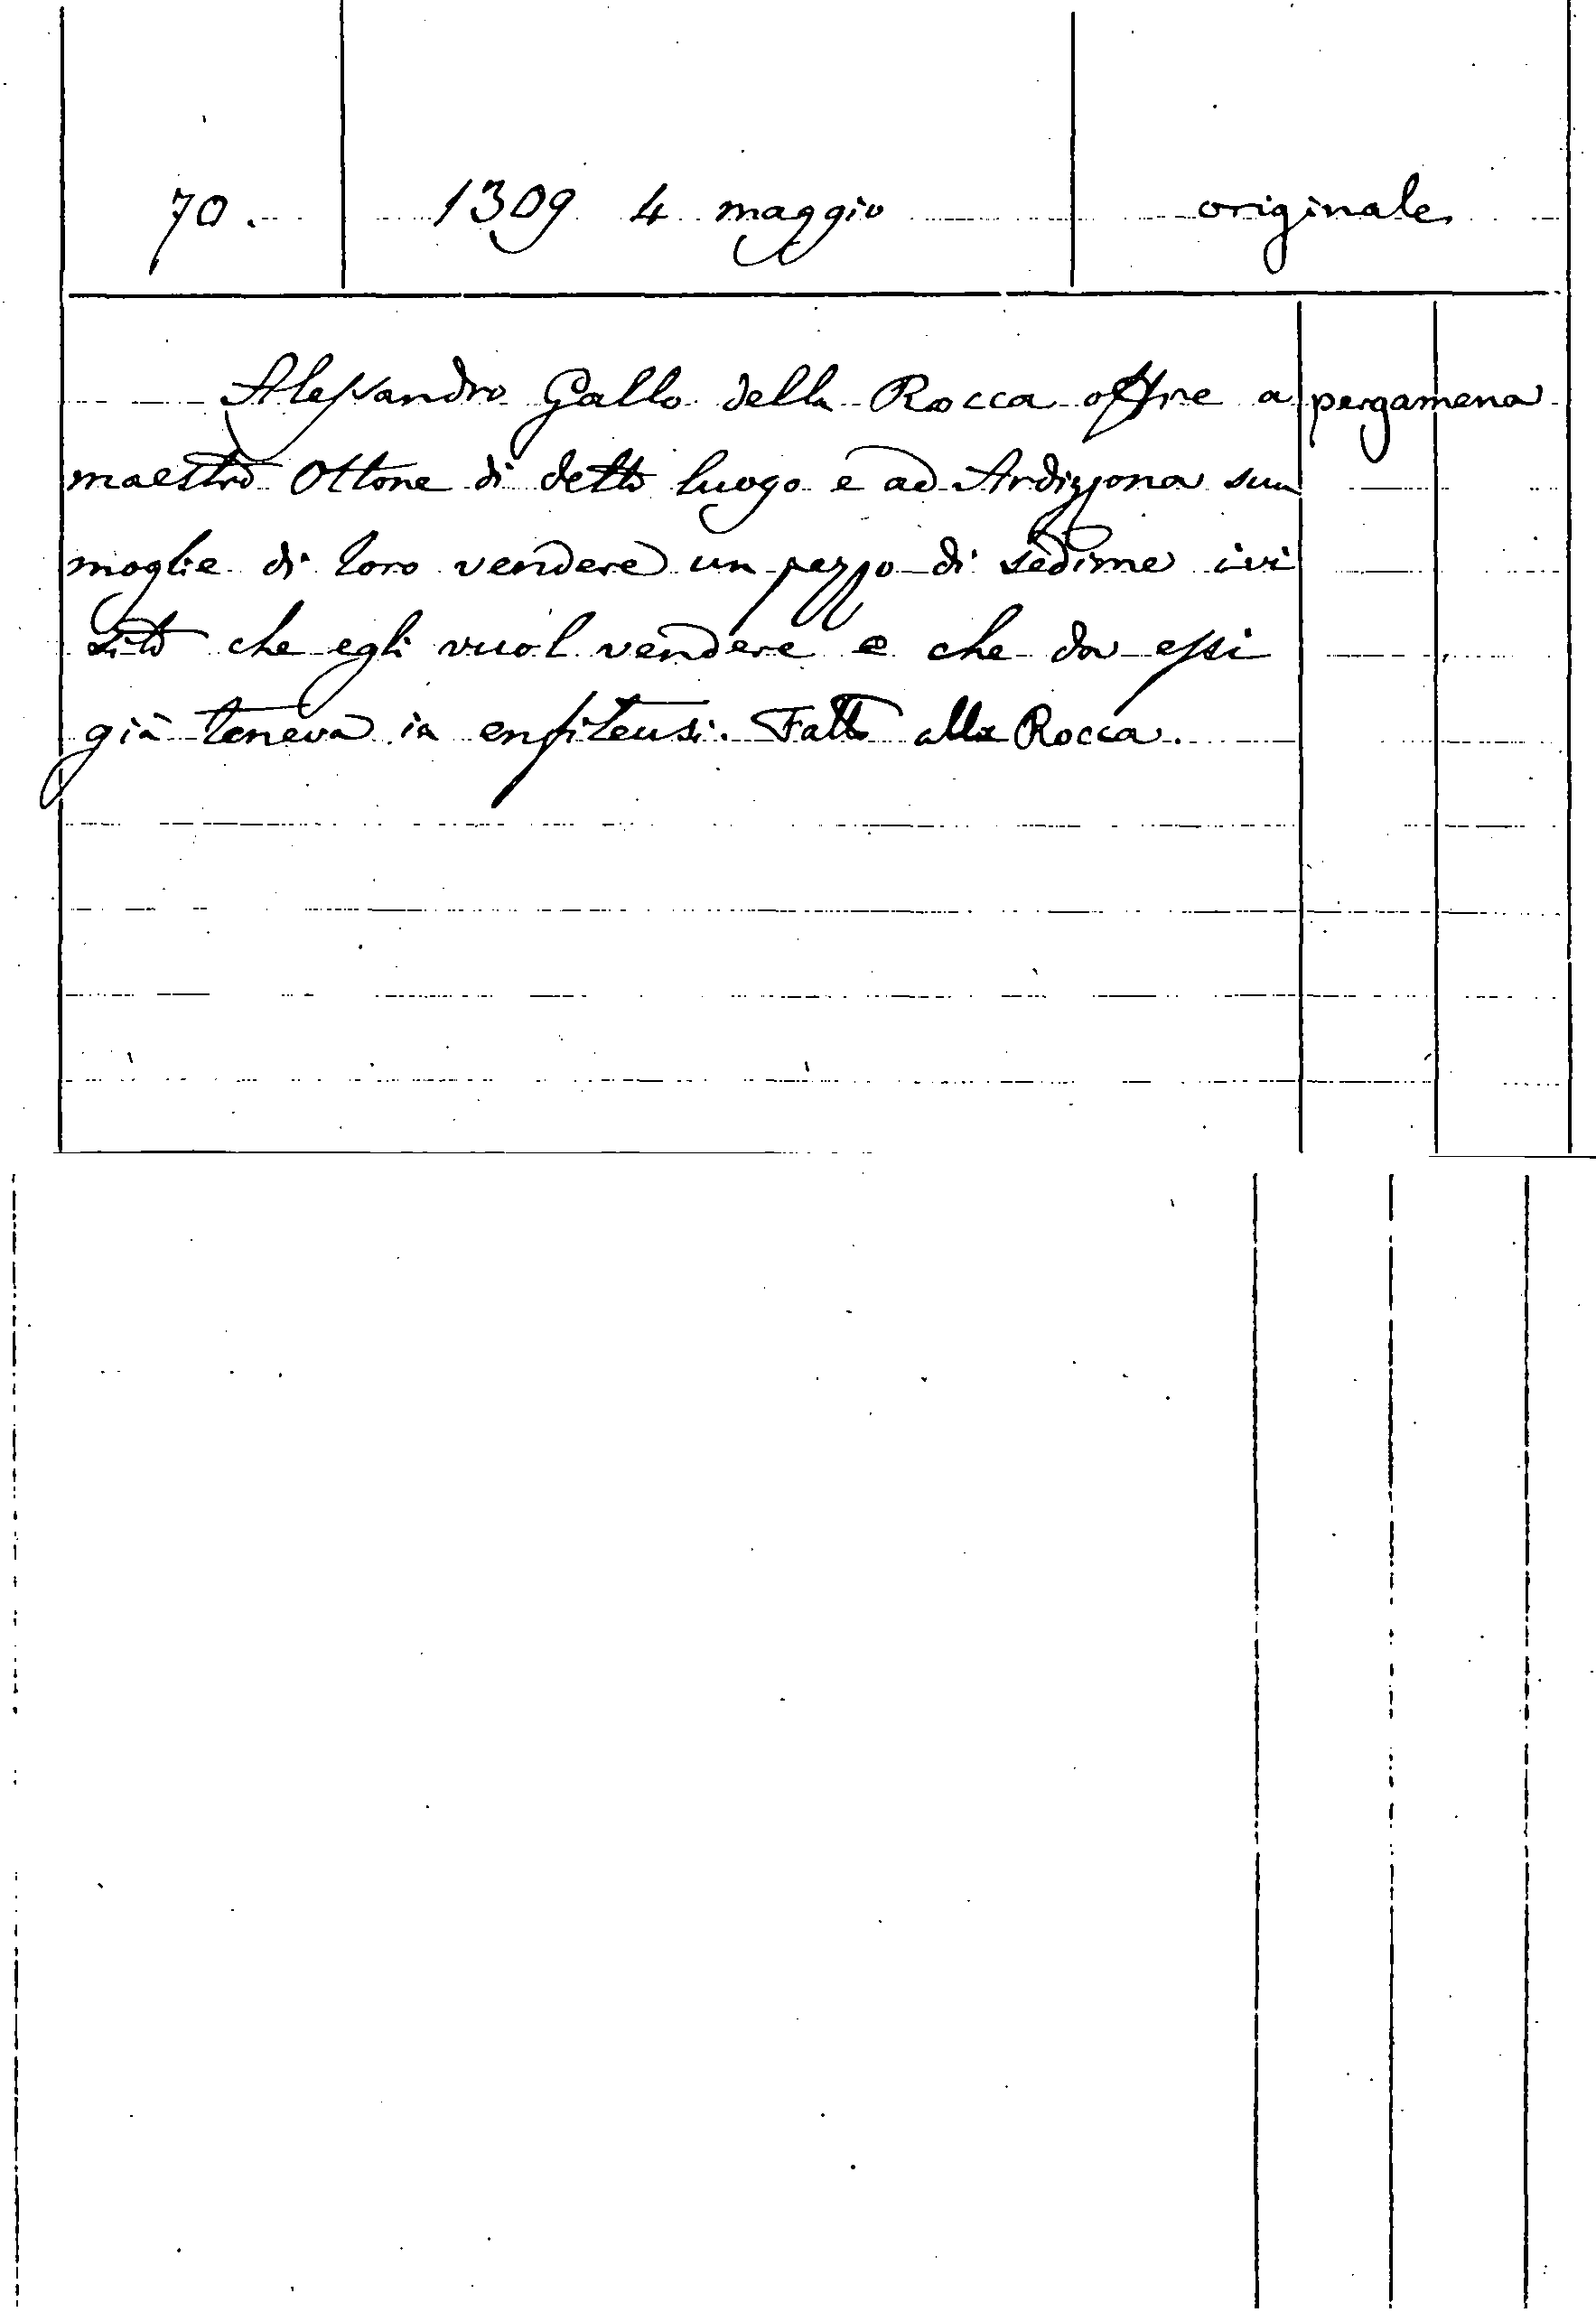 70. 1309 4 maggio originale
Alessandro Gallo della Rocca offre a pergamena
maestro Ottone di detto luogo e ad Ardizzona sua
moglie di loro vendere un pezzo di sedime ivi
sito che egli vuol vendere e che da essi
già teneva in enfiteusi. Fatto alla Rocca.